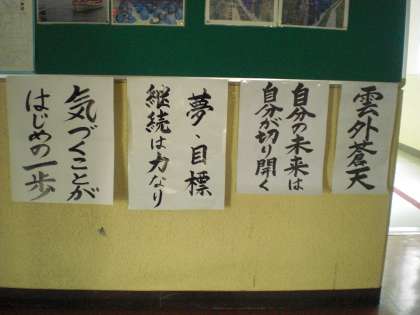 雲外蒼天
自分の未来は
自分が切り開く
夢・目標
継続は力なり
気づくことが
はじめの一歩